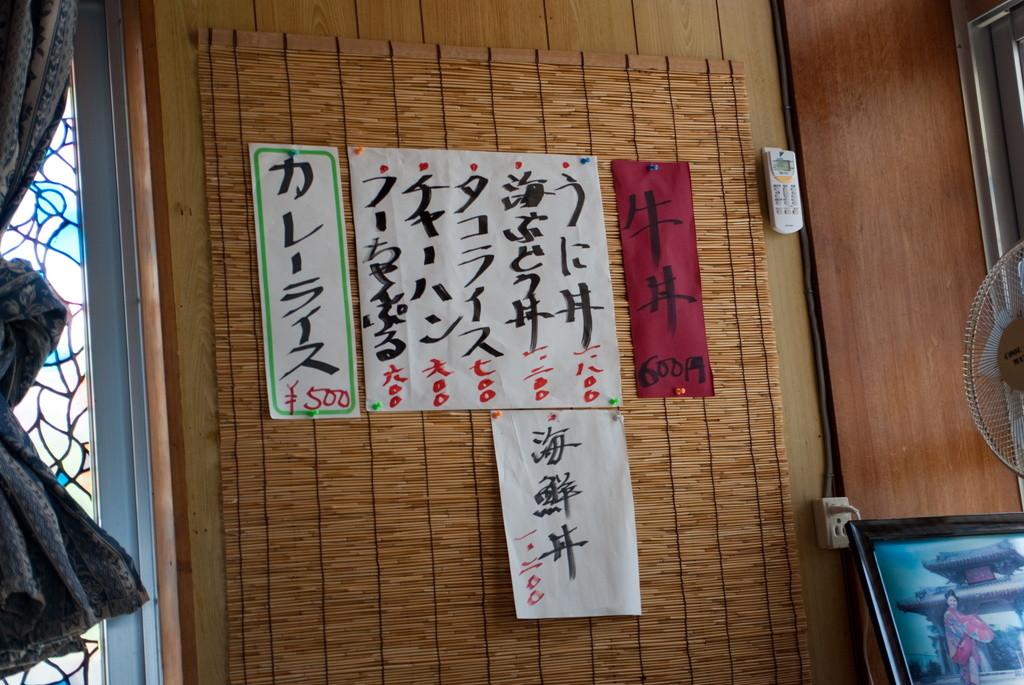 牛丼
600円
うに丼 一、八〇〇
海ぶどう丼 一、二〇〇
タコライス 七〇〇
チャーハン 六〇〇
フーちゃんぷる 六〇〇
カレーライス
¥500
海鮮丼
一、二〇〇